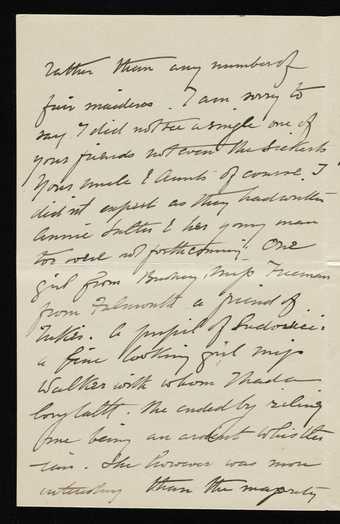 rather than any number of
fair maidens. I am sorry to
say I did not see a single one of
your friends not even the Sickerts
Your uncle & Aunts of course I
didn't expect as they had written
Annie & her young man
too were not forthcoming. One
girl from Miss Freeman
from Falmouth a friend of
Tuke's. A pupil of Ludovici's
a fine looking girl Miss
Walker with whom I had a
long talk. She ended by
me being an ardent Whistler
-ian. She however was more
interesting than the majority